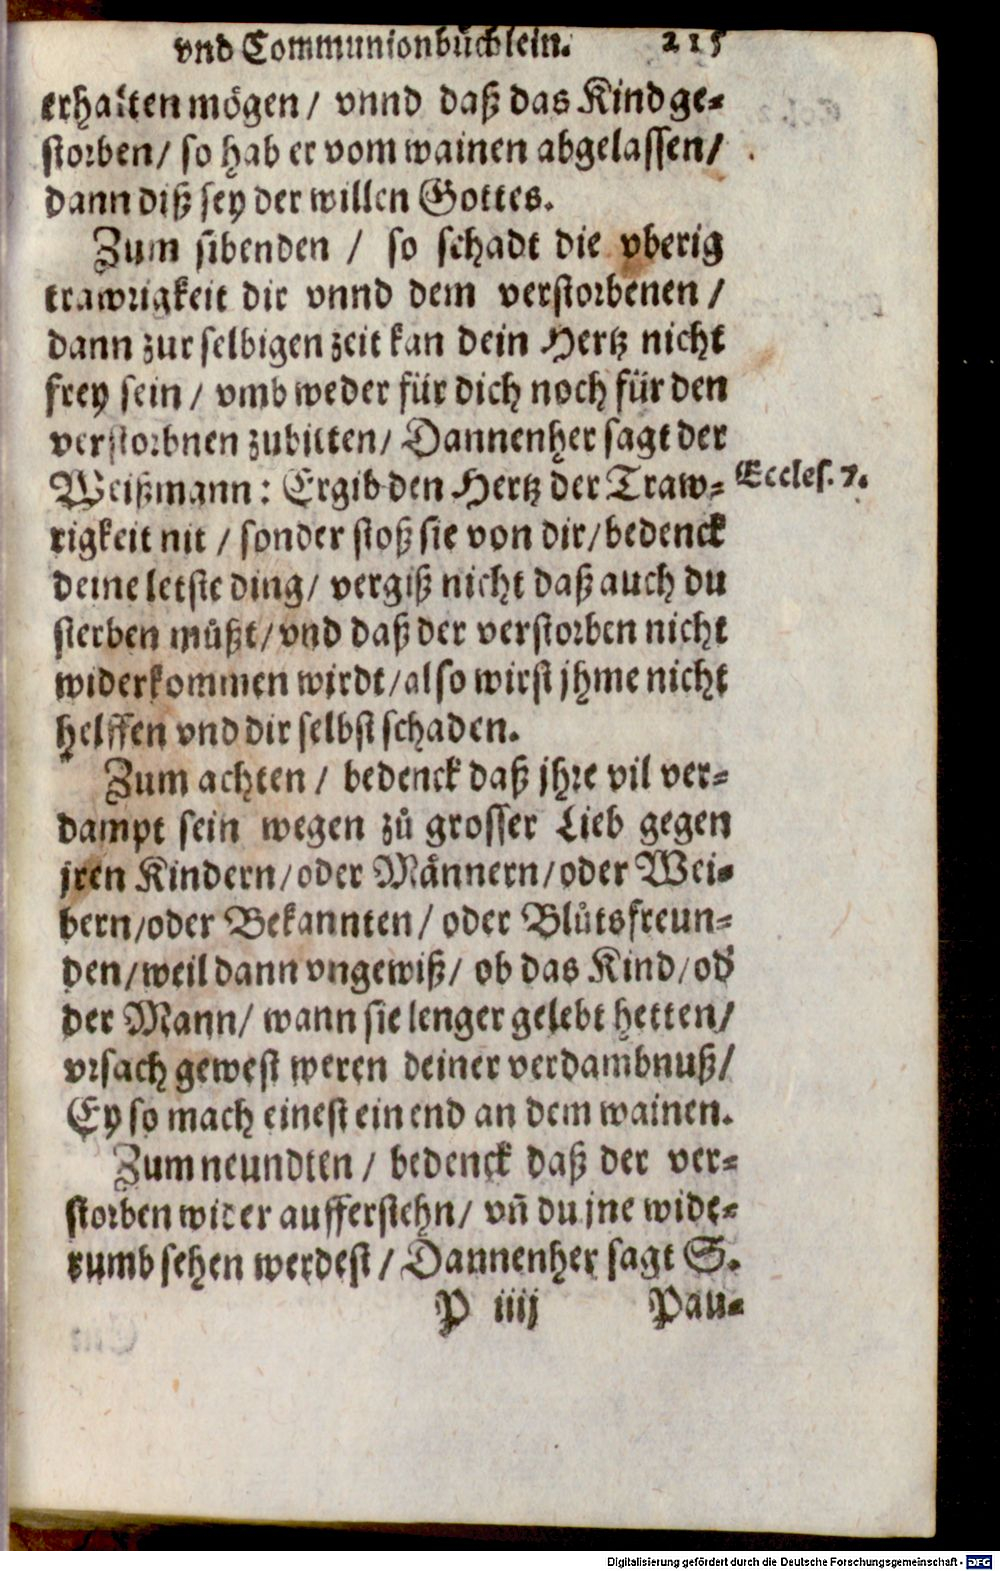 vnd Communionbüchlein. 215
erhalten mögen / vnnd daß das Kind ge-
storben / so hab er vom wainen abgelassen /
dann diß sey der willen Gottes.
Zum sibenden / so schadt die vberig
trawrigkeit dir vnnd dem verstorbenen /
dann zur selbigen zeit kan dein Hertz nicht
frey sein / vmb weder für dich noch für den
verstorbnen zubitten / Dannenher sagt der
Weißmann : Ergib den Hertz der Traw-
Eccles. 7.
rigkeit nit / sonder stoß sie von dir / bedenck
deine letste ding / vergiß nicht daß auch du
sterben müßt / vnd daß der verstorben nicht
widerkommen wirdt / also wirst jhme nicht
helffen vnd dir selbst schaden.
Zum achten / bedenck daß jhre vil ver-
dampt sein wegen zů grosser Lieb gegen
jren Kindern / oder Männern / oder Wei-
bern / oder Bekannten / oder Blůtsfreun-
den / weil dann vngewiß / ob das Kind / od̃
der Mann / wann sie lenger gelebt hetten /
vrsach gewest weren deiner verdambnuß /
Ey so mach einest ein end an dem wainen.
Zum neundten / bedenck daß der ver-
storben wider aufferstehn / vñ du jne wide-
rumb sehen werdest / Dannenher sagt S.
P iiij Pau-
Digitalisierung gefördert durch die Deutsche Forschungsgemeinschaft - DFG